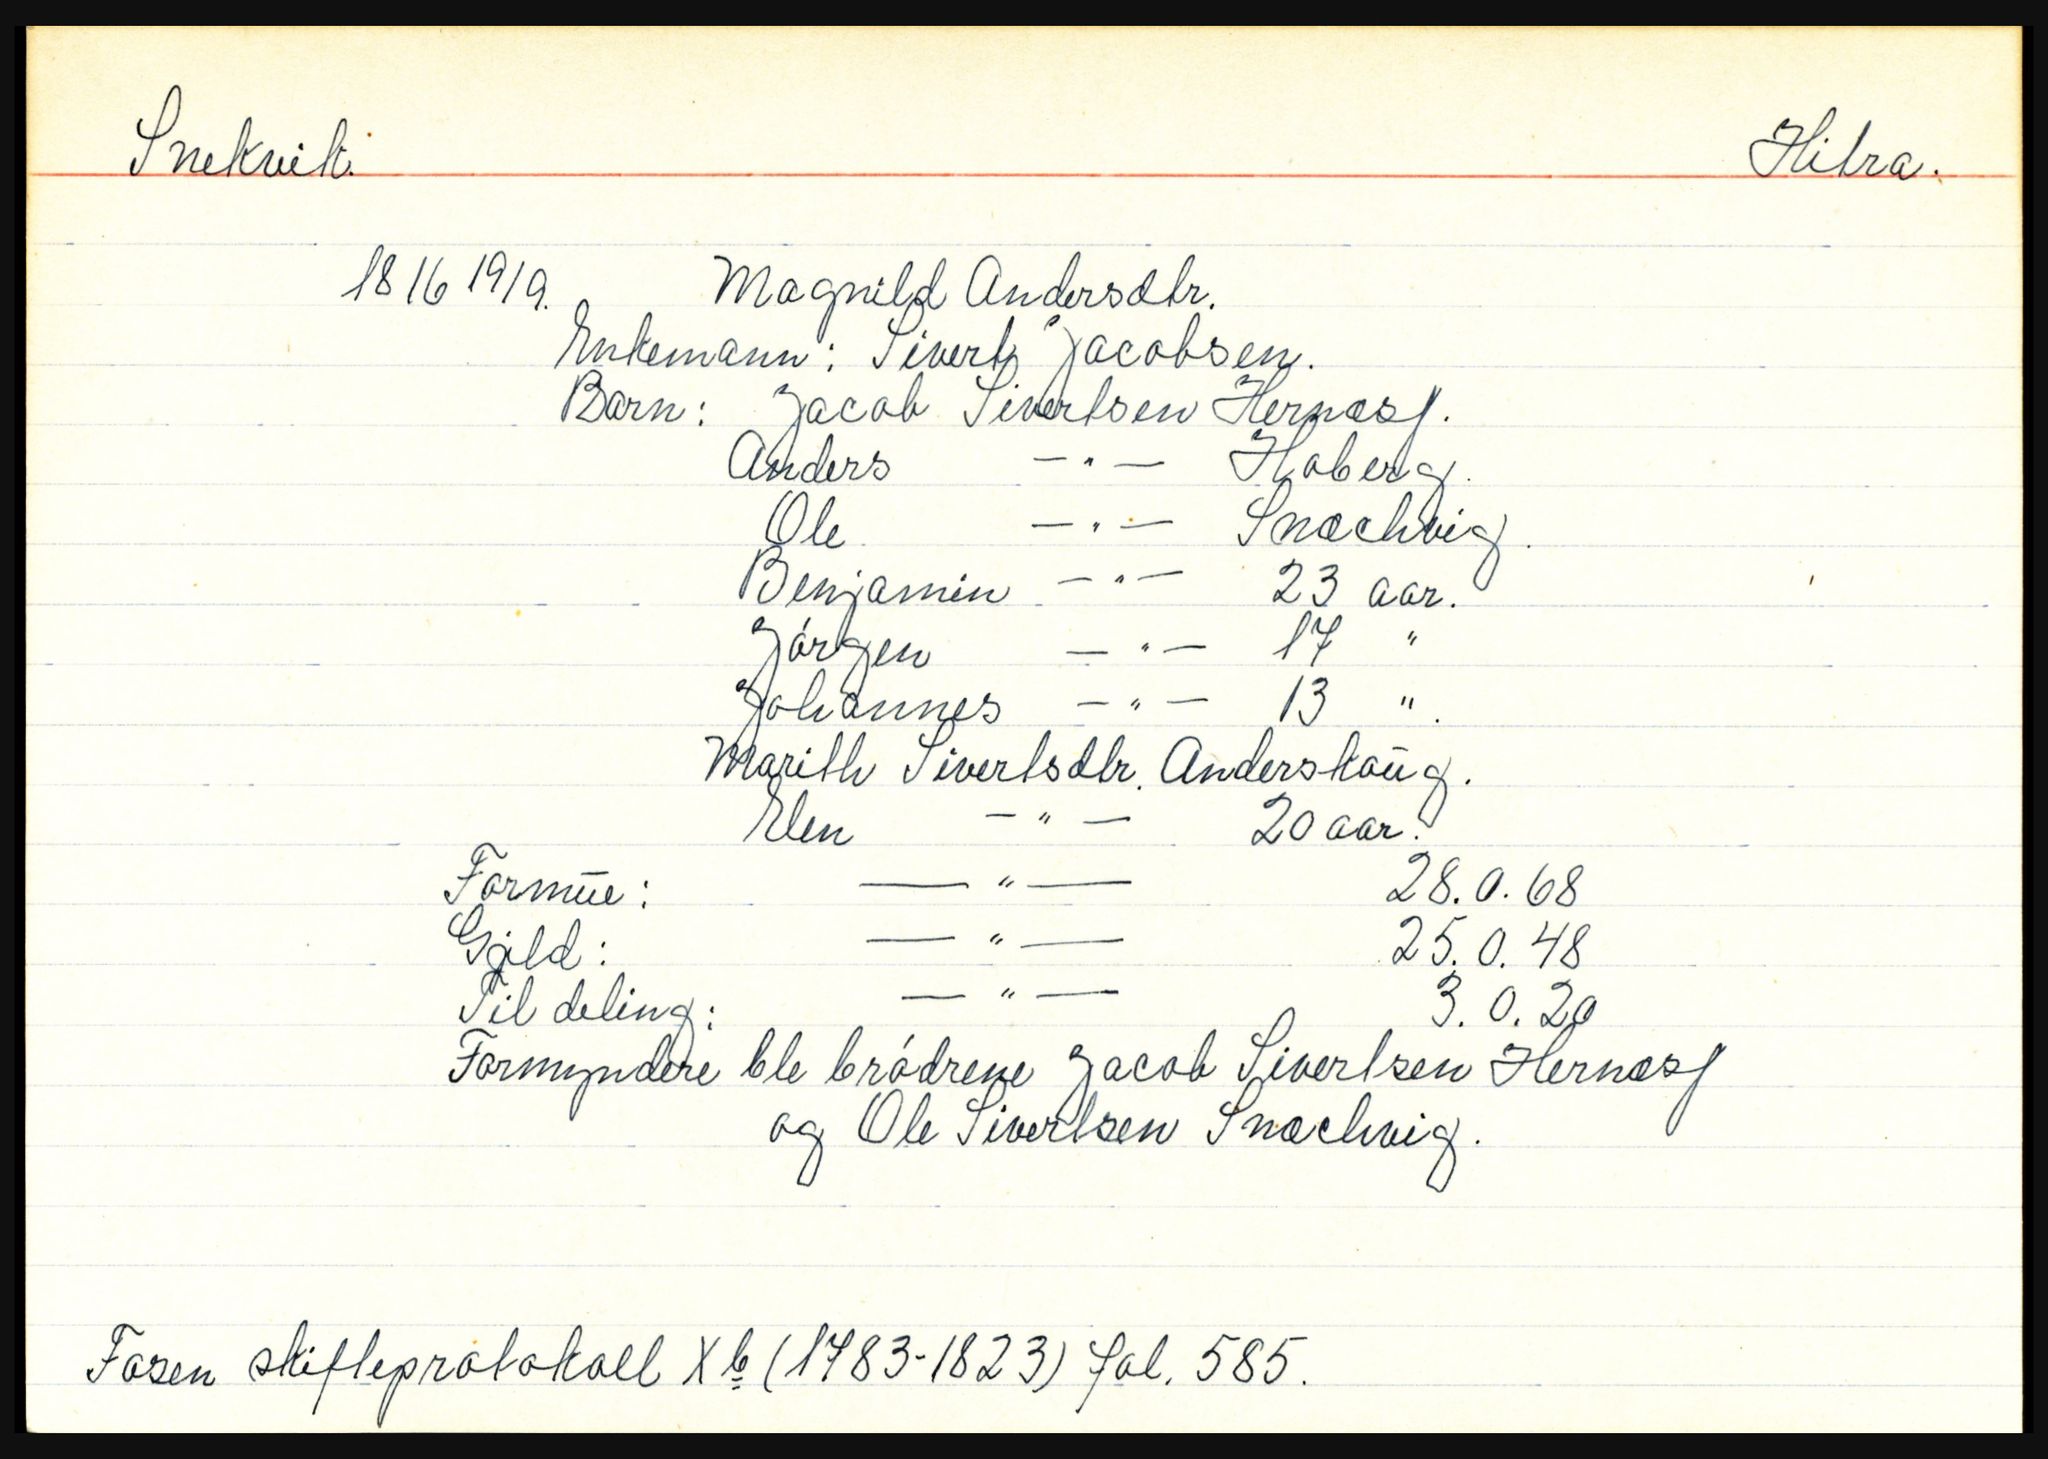 Snekvik. Hitra.
1816 19/9. Magnild Andersdtr.
Enkemann: Sivert Jacobsen.
Barn: Jacob Sivertsen Hernæsf.
Anders —"— Haberg.
Ole —"— Snæchvig.
Benjamin —"— 23 aar.
Jórgen —"— 17 "
Johannes —"— 13 ".
Marith Sivertsdtr. Anderskaŭg.
Elen —"— 20 aar.
Formŭe: —"— 28.0.68
Gjæld: —"— 25.0.48
Til deling: —"— 3.0.20
Formyndere ble bródrene Jacob Sivertsen Hernæsf
og Ole Sivertsen Snæchvig.
Fosen skifteprotokoll X b (1783-1823) fol. 585.